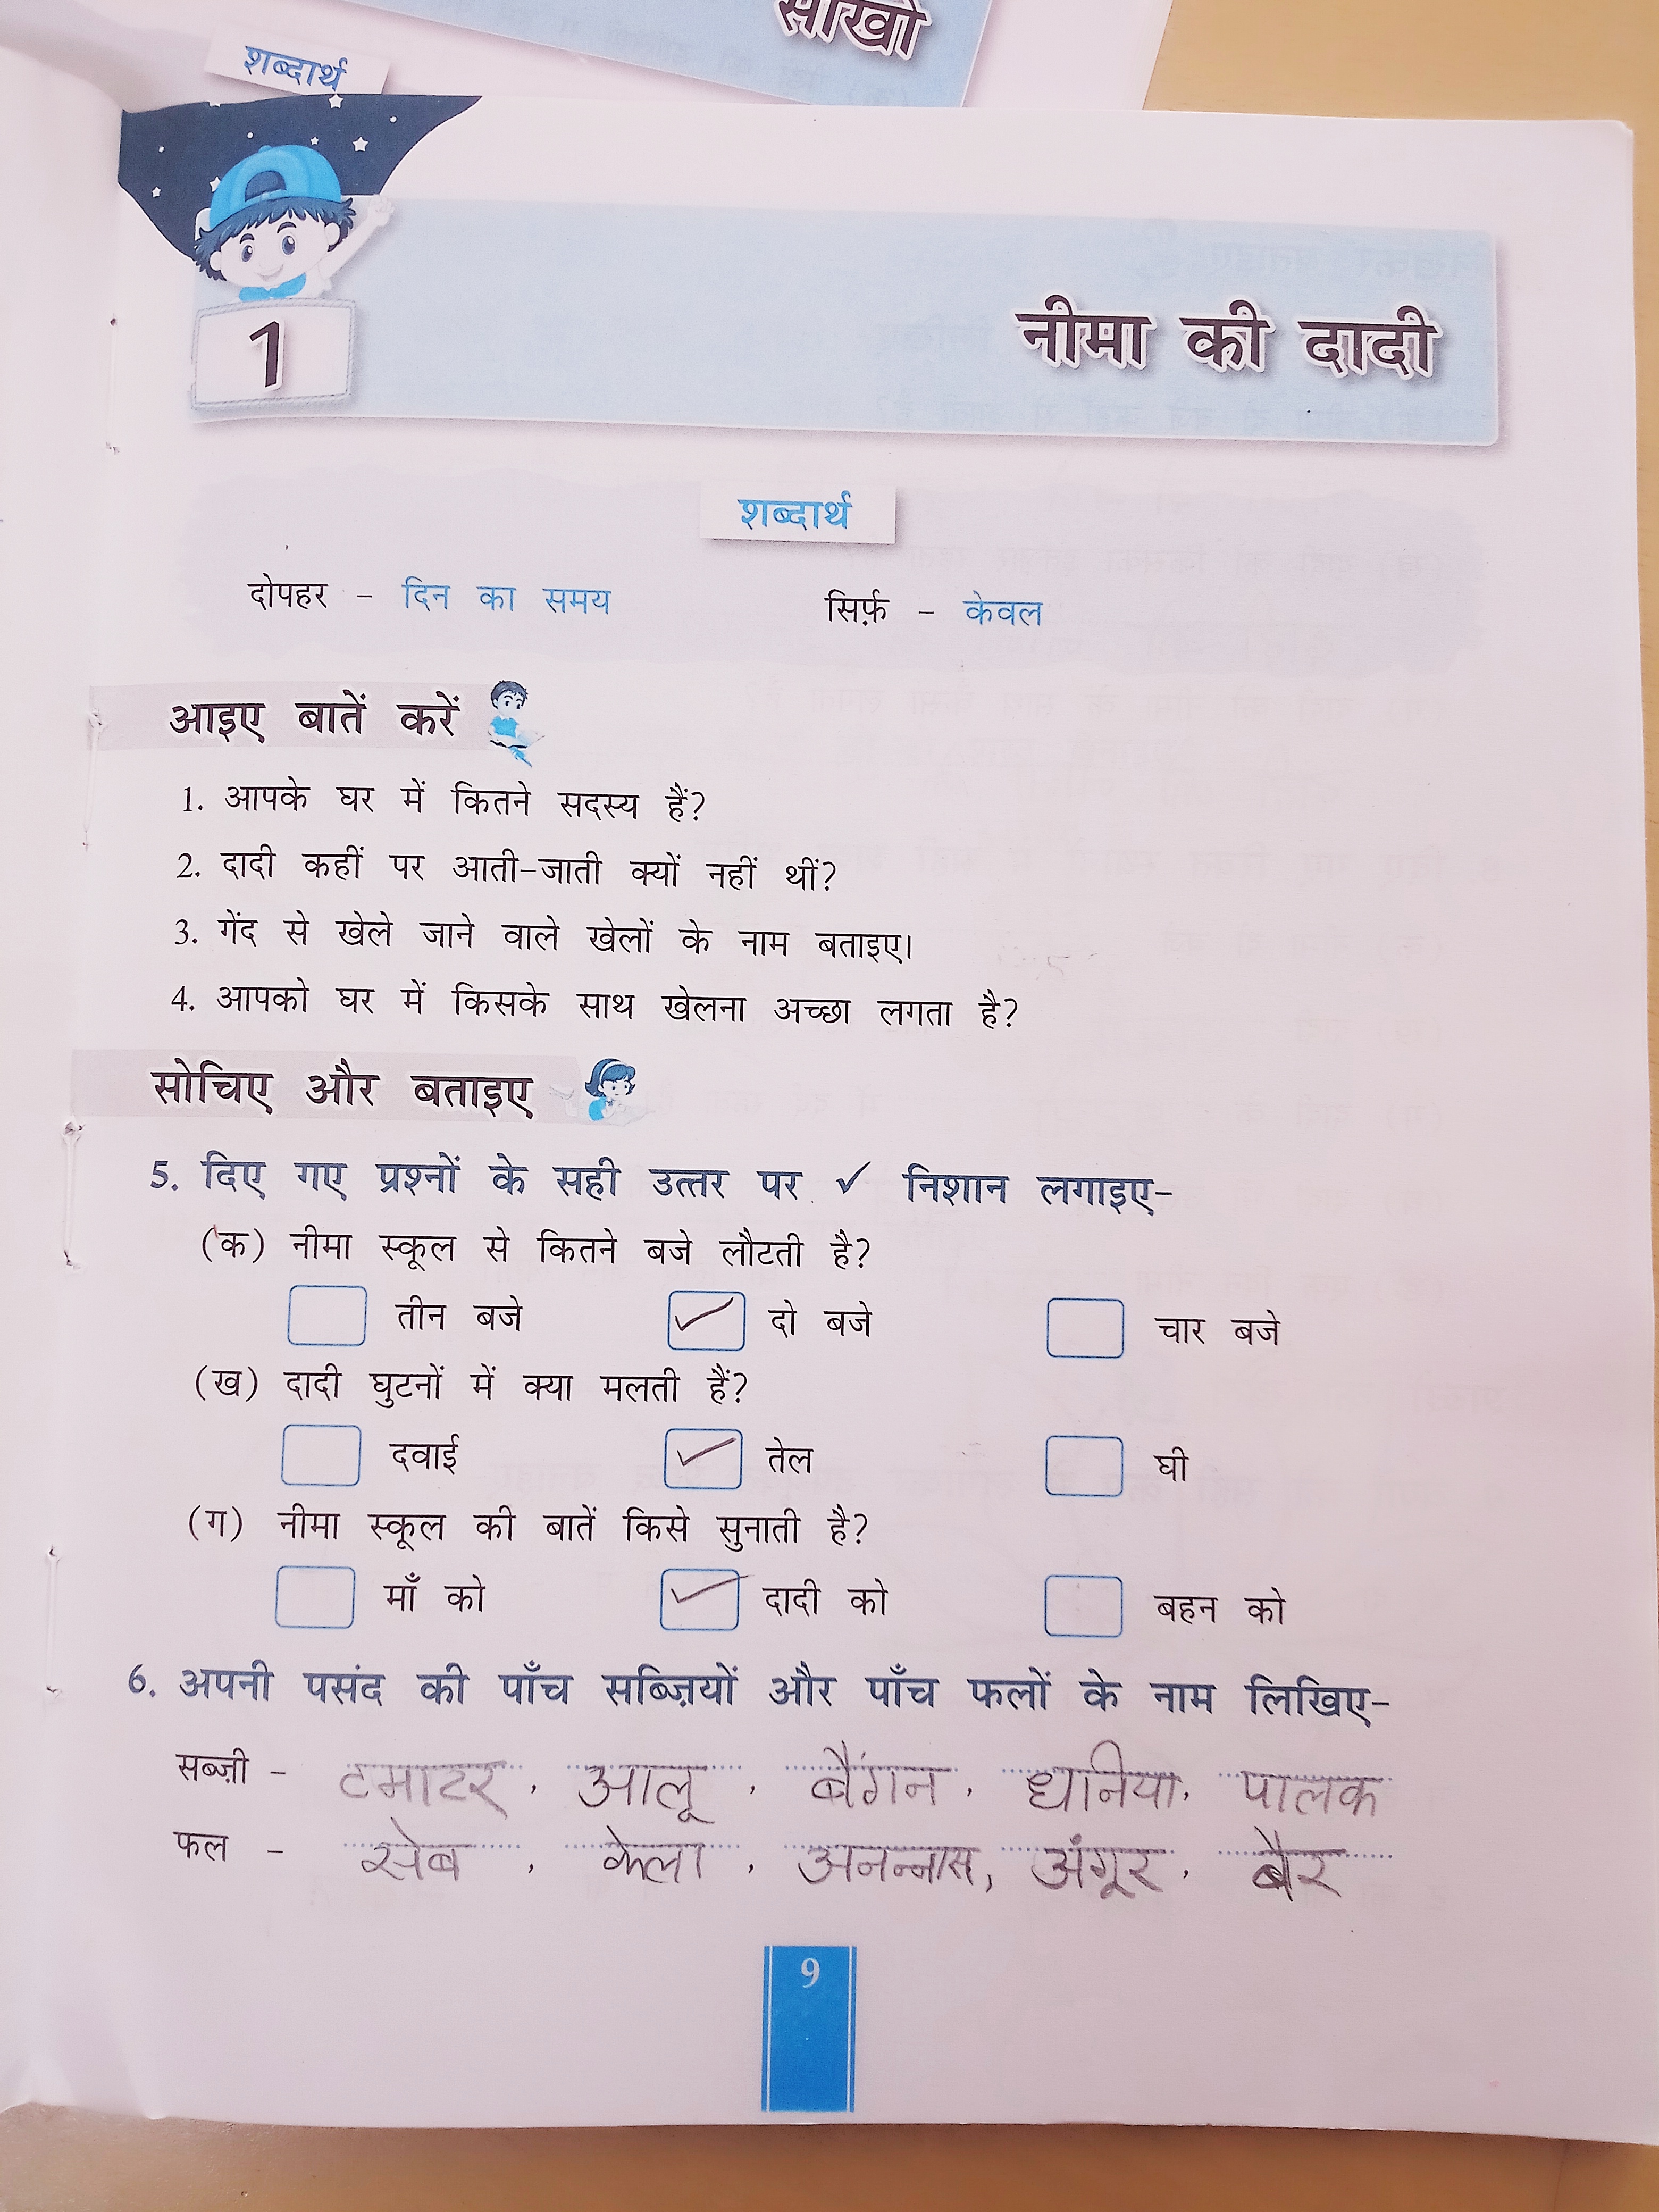 सीखो
शब्दार्थ
1
नीमा की दादी
शब्दार्थ
दोपहर - दिन का समय सिर्फ़ - केवल
आइए बातें करें
1. आपके घर में कितने सदस्य हैं?
2. दादी कहीं पर आती-जाती क्यों नहीं थीं?
3. गेंद से खेले जाने वाले खेलों के नाम बताइए।
4. आपको घर में किसके साथ खेलना अच्छा लगता है?
सोचिए और बताइए
5. दिए गए प्रश्नों के सही उत्तर पर ✓ निशान लगाइए-
(क) नीमा स्कूल से कितने बजे लौटती है?
तीन बजे ✓ दो बजे चार बजे
(ख) दादी घुटनों में क्या मलती हैं?
दवाई ✓ तेल घी
(ग) नीमा स्कूल की बातें किसे सुनाती है?
माँ को ✓ दादी को बहन को
6. अपनी पसंद की पाँच सब्ज़ियों और पाँच फलों के नाम लिखिए-
सब्ज़ी - टमाटर, आलू, बैंगन, धनिया, पालक
फल - सेब, केला, अनन्नास, अंगूर, बैर
9